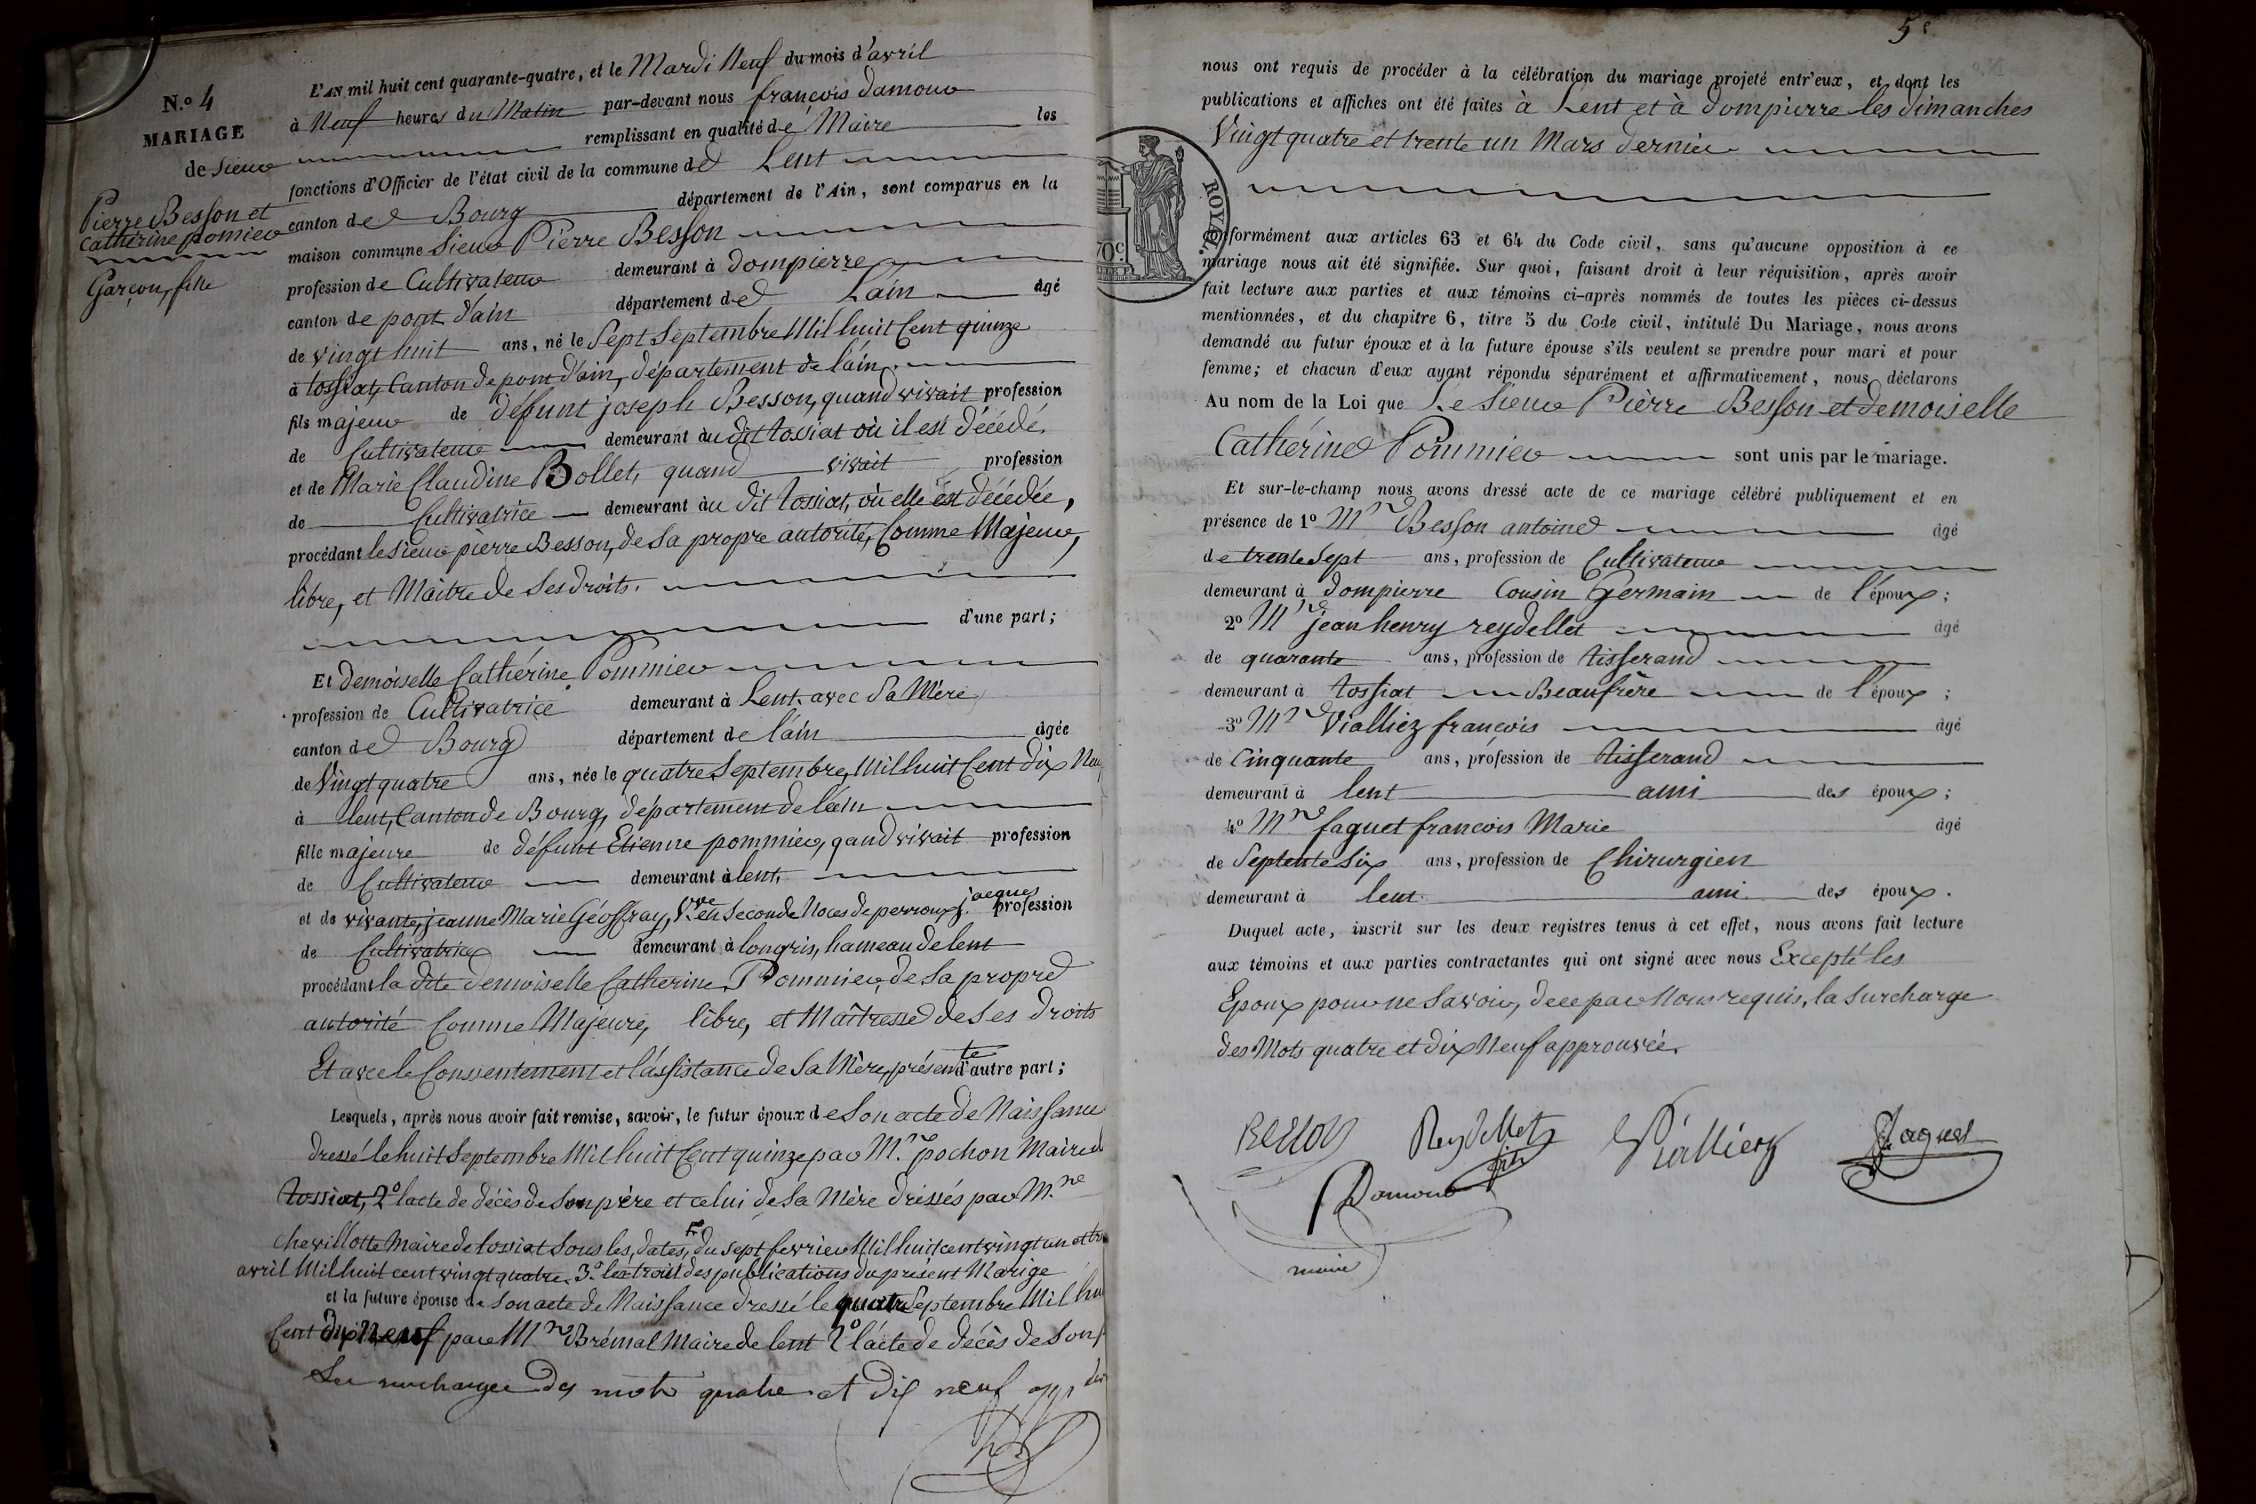 N.o 4
MARIAGE
de Sieur
Pierre Besson et
Catherine pomier
Garçon, fille
L'AN mil huit cent quarante-quatre, et le Mardi Neuf du mois d'avril
à Neuf heures du Matin par-devant nous françois damour
remplissant en qualité de Maire les
fonctions d'Officier de l'état civil de la commune de Lent
canton de Bourg département de l'Ain, sont comparus en la
maison commune Sieur Pierre Besson
profession de Cultivateur demeurant à dompierre
canton de pont d'ain département de L'ain âgé
de vingt huit ans, né le Sept Septembre Mil huit Cent quinze
à tossiat, Canton de pont d'ain, département de l'ain.
fils majeur de défunt joseph Besson, quand vivait profession
de Cultivateur demeurant au dit tossiat où il est décédé.
et de Marie Claudine Bollet, quand vivait profession
de Cultivatrice demeurant au dit tossiat, où elle est décédée,
procédant le Sieur pierre Besson, de Sa propre autorité, Comme Majeur,
libre, et Maître de Ses droits.
d'une part;
Et demoiselle Cathérine Pommier
profession de Cultivatrice demeurant à Lent avec Sa Mère
canton de Bourg département de l'ain âgée
de Vingt quatre ans, née le quatre Septembre, Mil huit Cent dix Neuf
à lent, Canton de Bourg, département de l'ain
fille majeure de défunt Etienne pommier, qand vivait profession
de Cultivateur demeurant à lent,
et de vivante, jeanne Marie Géoffray, Vve en Seconde Noces de perroux jacques profession
de Cultivatrice demeurant à longris, hameau de lent
procédant la dite demoiselle Catherine Pommier, de Sa propre
autorité Comme Majeure, libre, et Maîtresse de Ses Droits
Et avec le Consentement et l'assistance de Sa Mère, présente d'autre part;
Lesquels, après nous avoir fait remise, savoir, le futur époux de Son acte de Naissance
dressé le huit Septembre Mil huit Cent quinze par M. pochon Maire de
tossiat, 2o l'acte de décès de Son père et celui de Sa Mère dressés par M.re
Chevillotte Maire de tossiat Sous les dates, du sept fevrier Mil huit cent vingt un et
avril Mil huit cent vingt quatre. 3o des publications du présent Marige
et la future épouse de Son acte de Naissance dressé le quatre Septembre Mil huit
Cent dix Neuf par Mre Brémal Maire de lent 2o l'acte de décès de Son
Les surcharges des mots quatre et dix neuf
5e
nous ont requis de procéder à la célébration du mariage projeté entr'eux, et dont les
publications et affiches ont été faites à Lent et à dompierre les dimanches
Vingt quatre et trente un Mars dernier
70c.
ROYAL.
conformément aux articles 63 et 64 du Code civil, sans qu'aucune opposition à ce
mariage nous ait été signifiée. Sur quoi, faisant droit à leur réquisition, après avoir
fait lecture aux parties et aux témoins ci-après nommés de toutes les pièces ci-dessus
mentionnées, et du chapitre 6, titre 5 du Code civil, intitulé Du Mariage, nous avons
demandé au futur époux et à la future épouse s'ils veulent se prendre pour mari et pour
femme; et chacun d'eux ayant répondu séparément et affirmativement, nous déclarons
Au nom de la Loi que Le Sieur Pièrre Besson et demoiselle
Cathérine Pommier sont unis par le mariage.
Et sur-le-champ nous avons dressé acte de ce mariage célébré publiquement et en
présence de 1o Mre Besson antoine âgé
de trente Sept ans, profession de Cultivateur
demeurant à dompierre Cousin Germain de l'époux;
2o Mre jean henry reydellet âgé
de quarante ans, profession de tisserand
demeurant à tossiat Beaufrère de l'époux;
3o Mre Vialliez françois âgé
de Cinquante ans, profession de tisserand
demeurant à lent ami des époux;
4o Mre faguet francois Marie âgé
de Septente Six ans, profession de Chirurgien
demeurant à lent ami des époux.
Duquel acte, inscrit sur les deux registres tenus à cet effet, nous avons fait lecture
aux témoins et aux parties contractantes qui ont signé avec nous Excepté les
Epoux pour ne Savoir, de ce par Nous requis, la Surcharge
des Mots quatre et dix Neuf approuvée.
Besson Reydellet Vialliez Faguet
Damour
maire